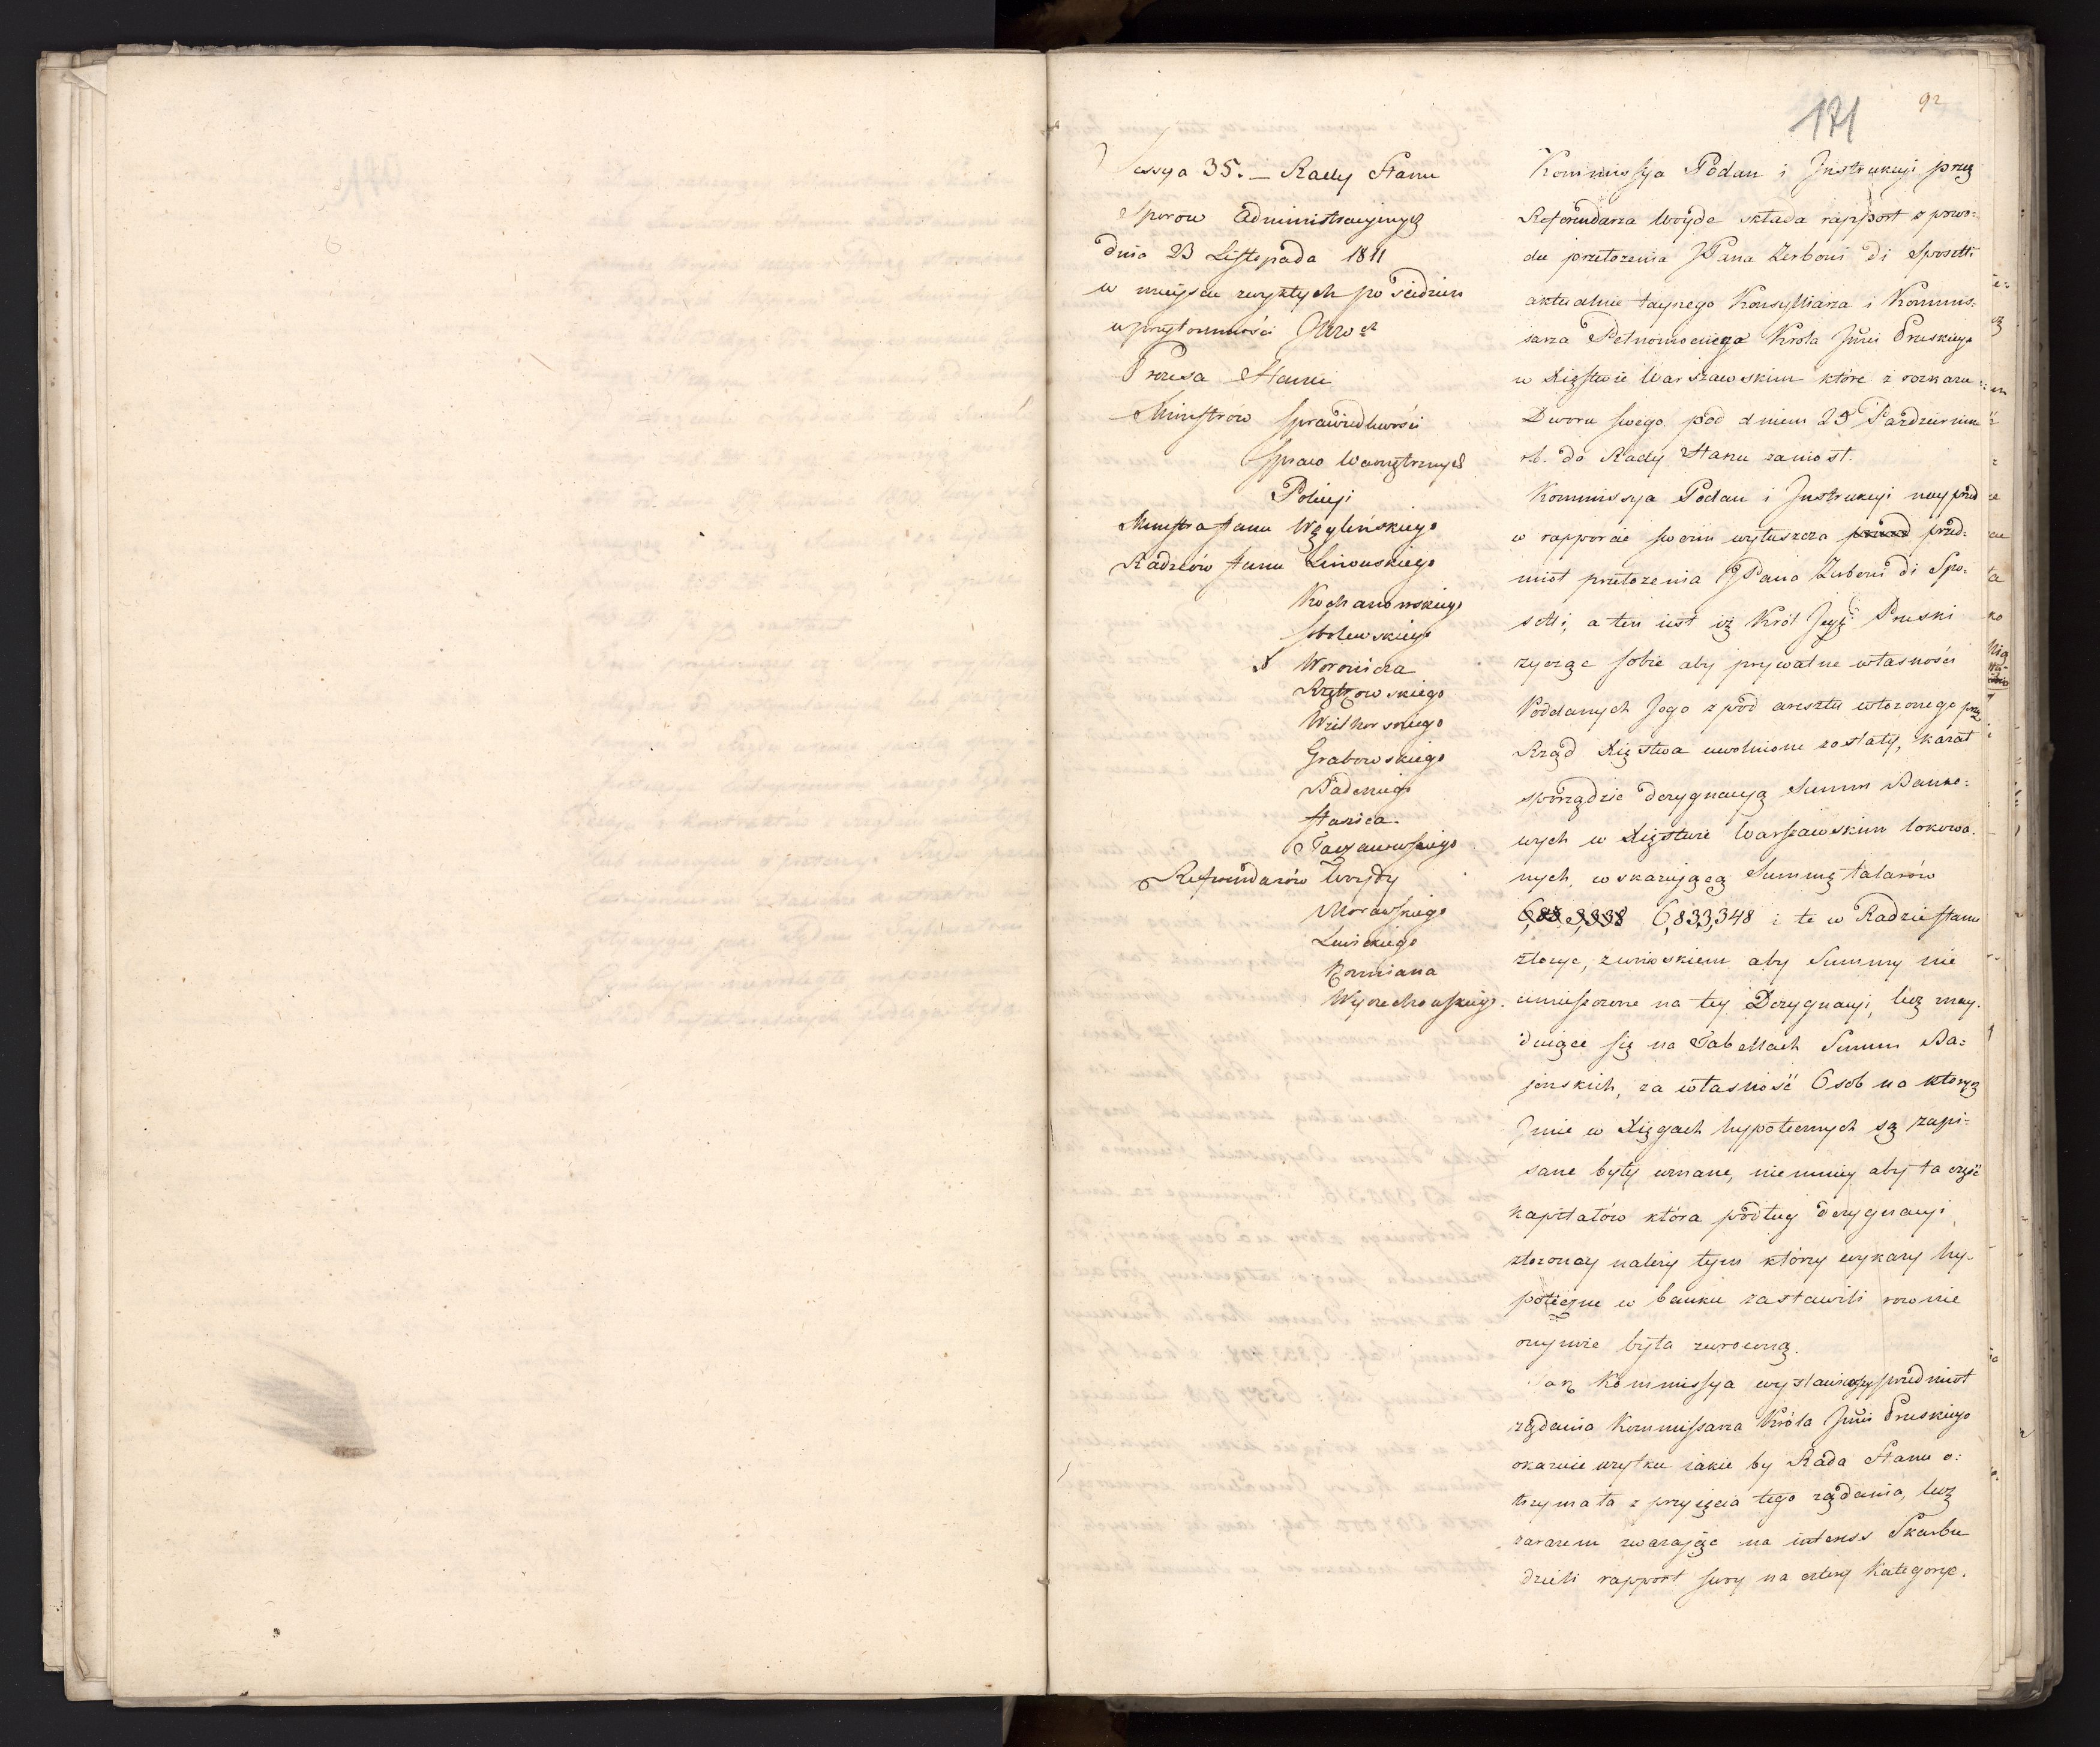 171
92
Sessya 35. — Rady Stanu
Sporów Administracyinych
dnia 23 Listopada 1811
w mieyscu zwykłych posiedzeń
w przytomności JWW<sup>ch</sup>
Prezesa Stanu
Ministrów Sprawiedliwości
Spraw Wewnętrznych
Policyi
Ministra Stanu Węgleńskiego
Radzców Stanu Linowskiego
Kochanowskiego
Sobolewskiego
Woronicza
Rzętkowskiego
Wielhorskiego
Grabowskiego
Badeniego
Staszica
Taczanowskiego
Referendarzów Woydy
Morawskiego
Lewickiego
Koźmiana
Wyczechowskiego.
Kommissya Podań i Instrukcyi przez
Referendarza Woyde składa rapport z powo=
du przełożenia JPana Zerboni di Sposetti
aktualnie taynego Konsylliarza i Kommis=
sarza Pełnomocnego Króla Jmci Pruskiego
w Xięstwie Warszawskim które z rozkazu
Dworu swego pod dniem 25 Pazdziernika
rb. do Rady Stanu zaniosł.
Kommissya Podań i Instrukcyi naypród
w rapporcie swoim wyłuszcza przed=
miot przełożenia JPana Zerboni di Spo=
setti, a ten iest iż Król Jegć Pruski
życząc sobie aby prywatne własności
Poddanych Jego z pod aresztu włożonego przez
Rząd Xięstwa uwolnione zostały, kazał
sporządzić dezygnacyą Summ Banko=
wych w Xięstwie Warszawskim lokowa=
nych, wskazuiącą Summę talarów
6,833,338 6,833,348 i te w Radzie Stanu
złożyć, z wnioskiem aby Summy nie
umieszczone na tey Dezygnacyi, lecz znay=
duiące się na Tabellach Summ Ba=
jońskich, za własność Osob na których
Jmie w Xięgach hypotecznych są zapi=
sane były uznane, niemniey aby ta część
kapitałów która podług dezygnacyi
złożoney należy tym którzy wykazy hy=
poteczne w banku zastawili rownie
onymże była zwroconą.
Tak Kommissya wystawiwszy przedmiot
żądania Kommissarza Króla Jmci Pruskiego
okazuie użytku iakie by Rada Stanu o=
trzymała z przyięcia tego żądania, lecz
zarazem zważając na interess Skarbu
dzieli rapport swoy na cztery Kategorye.